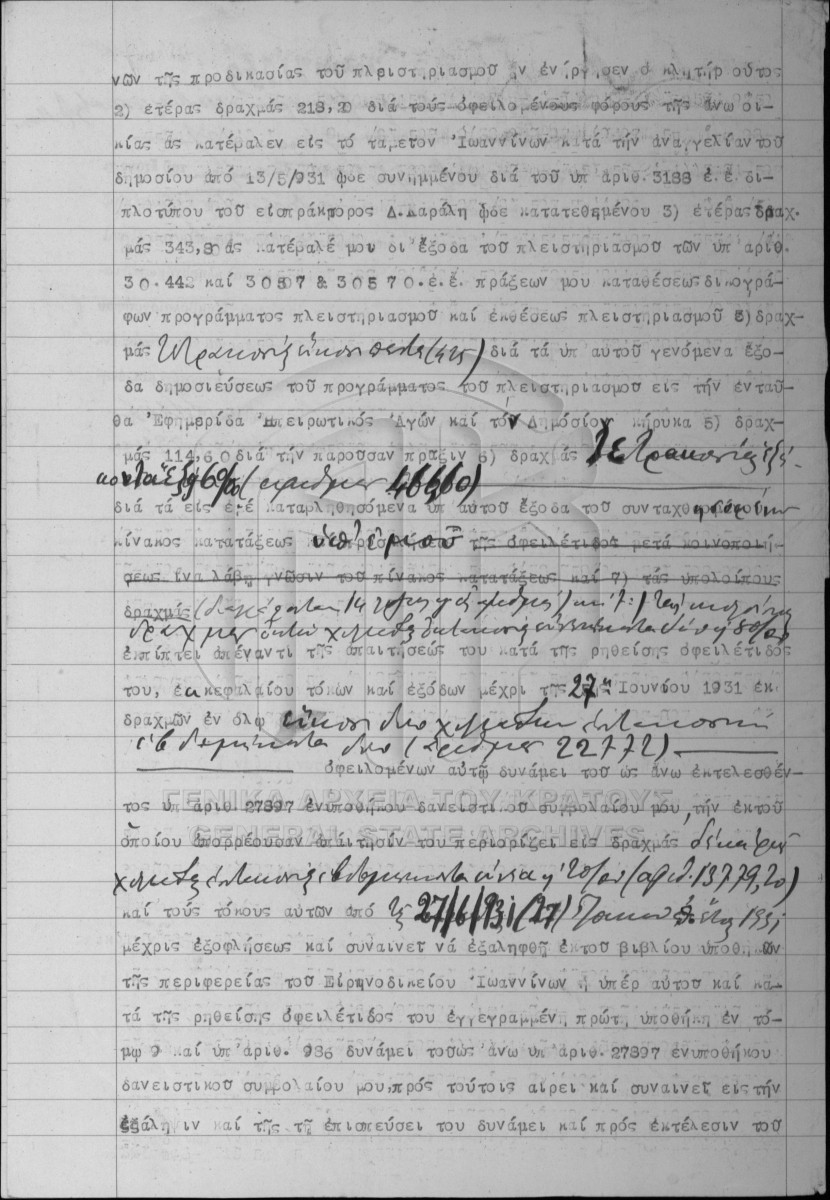 νῶν τῆς προδικασίας τοῦ πλειστηριασμοῦ ἣν ἐνήργησεν ὁ κλητήρ οὗτος
2) ἑτέρας δραχμάς 218,20 διά τούς ὀφειλομένους φόρους τῆς ἄνω οἰ-
κίας ἅς κατέβαλεν εἰς τό ταμεῖον Ἰωαννίνων κατά τήν ἀναγγελίαν τοῦ
δημοσίου ἀπό 13/5/931 ὧδε συνημμένου διά τοῦ ὑπ ἀριθ. 3188 ἐ.ἔ. δι-
πλοτύπου τοῦ εἰσπράκτορος Δ. Καράλη ὧδε κατατεθημένου 3) ἑτέρας δραχ.
μάς 343,80 ἅς κατέβαλέ μοι δι ἔξοδα τοῦ πλειστηριασμοῦ τῶν ὑπ ἀριθ.
30.442 καί 30557 & 30570.ἐ.ἔ. πράξεων μου καταθέσεως δικογρά-
φων προγράμματος πλειστηριασμοῦ καί ἐκθέσεως πλειστηριασμοῦ 3) δραχ-
μάς τετρακοσίας εἴκοσι πέντε (425) διά τά ὑπ αὐτοῦ γενόμενα ἔξο-
δα δημοσιεύσεως τοῦ προγράμματος τοῦ πλειστηριασμοῦ εἰς τήν ἐνταῦ-
θα Ἐφημερίδα Ἠπειρωτικός Ἀγών καί τόν Δημόσιον κήρυκα 5) δραχ-
μάς 114,60 διά τήν παροῦσαν πρᾶξιν 6) δραχμάς τετρακοσίας ἑξή-
κοντα ἕξ 60/00 (ἀριθμός 466,60)
διά τά εἰς ἐμέ καταβληθησόμενα ὑπ αὐτοῦ ἔξοδα τοῦ συνταχθησομένου
πίνακος κατατάξεως τῆς ὀφειλέτιδος μετά κοινοποιή-
σεως ἵνα λάβῃ γνῶσιν τοῦ πίνακος κατατάξεως καί 7) τάς ὑπολοίπους
δραχμάς
δραχμάς
ἐκπίπτει ἀπέναντι τῆς ἀπαιτήσεώς του κατά τῆς ρηθείσης ὀφειλέτιδός
του, ἐκ κεφαλαίου τόκων καί ἐξόδων μέχρι τῆς 27ης Ἰουνίου 1931 ἐκ
δραχμῶν ἐν ὅλῳ εἴκοσι δύο χιλιάδων ἑπτακοσίων
ἑβδομήκοντα δύο (ἀριθμός 22772)
ὀφειλομένων αὐτῷ δυνάμει τοῦ ὡς ἄνω ἐκτελεσθέν-
τος ὑπ ἀριθ. 27897 ἐνυποθήκου δανειστικοῦ συμβολαίου μου, τήν ἐκ τοῦ
ὁποίου ἀπορρέουσαν ἀπαίτησίν του περιορίζει εἰς δραχμάς δέκα τρεῖς
χιλιάδας ἑπτακοσίας ἑβδομήκοντα ἐννέα 20/00 (ἀριθ. 13779,20)
καί τούς τόκους αὐτῶν ἀπό τῆς 27/6/931 (27) 1931
μέχρις ἐξοφλήσεως καί συναινεῖ νά ἐξαληφθῇ ἐκ τοῦ βιβλίου ὑποθηκῶν
τῆς περιφερείας τοῦ Εἰρηνοδικείου Ἰωαννίνων ἡ ὑπέρ αὐτοῦ καί κα-
τά τῆς ρηθείσης ὀφειλέτιδός του ἐγγεγραμμένη πρώτη ὑποθήκη ἐν τό-
μῳ 9 καί ὑπ ἀριθ. 986 δυνάμει τοῦ ὡς ἄνω ὑπ ἀριθ. 27897 ἐνυποθήκου
δανειστικοῦ συμβολαίου μου, πρός τούτοις αἴρει καί συναινεῖ εἰς τήν
ἐξάληψιν καί τῆς τῇ ἐπισπεύσει του δυνάμει καί πρός ἐκτέλεσιν τοῦ
ΓΕΝΙΚΑ ΑΡΧΕΙΑ ΤΟΥ ΚΡΑΤΟΥΣ
GENERAL STATE ARCHIVES